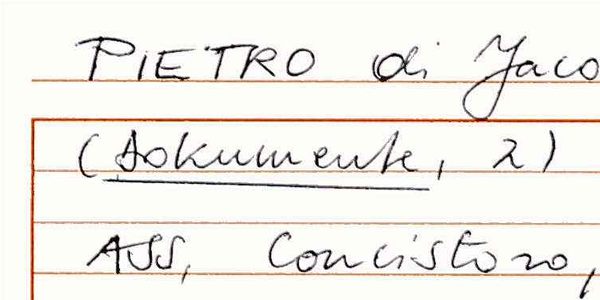 PIETRO di Jaco
(Dokumente, 2)
ASS, Concistoro,